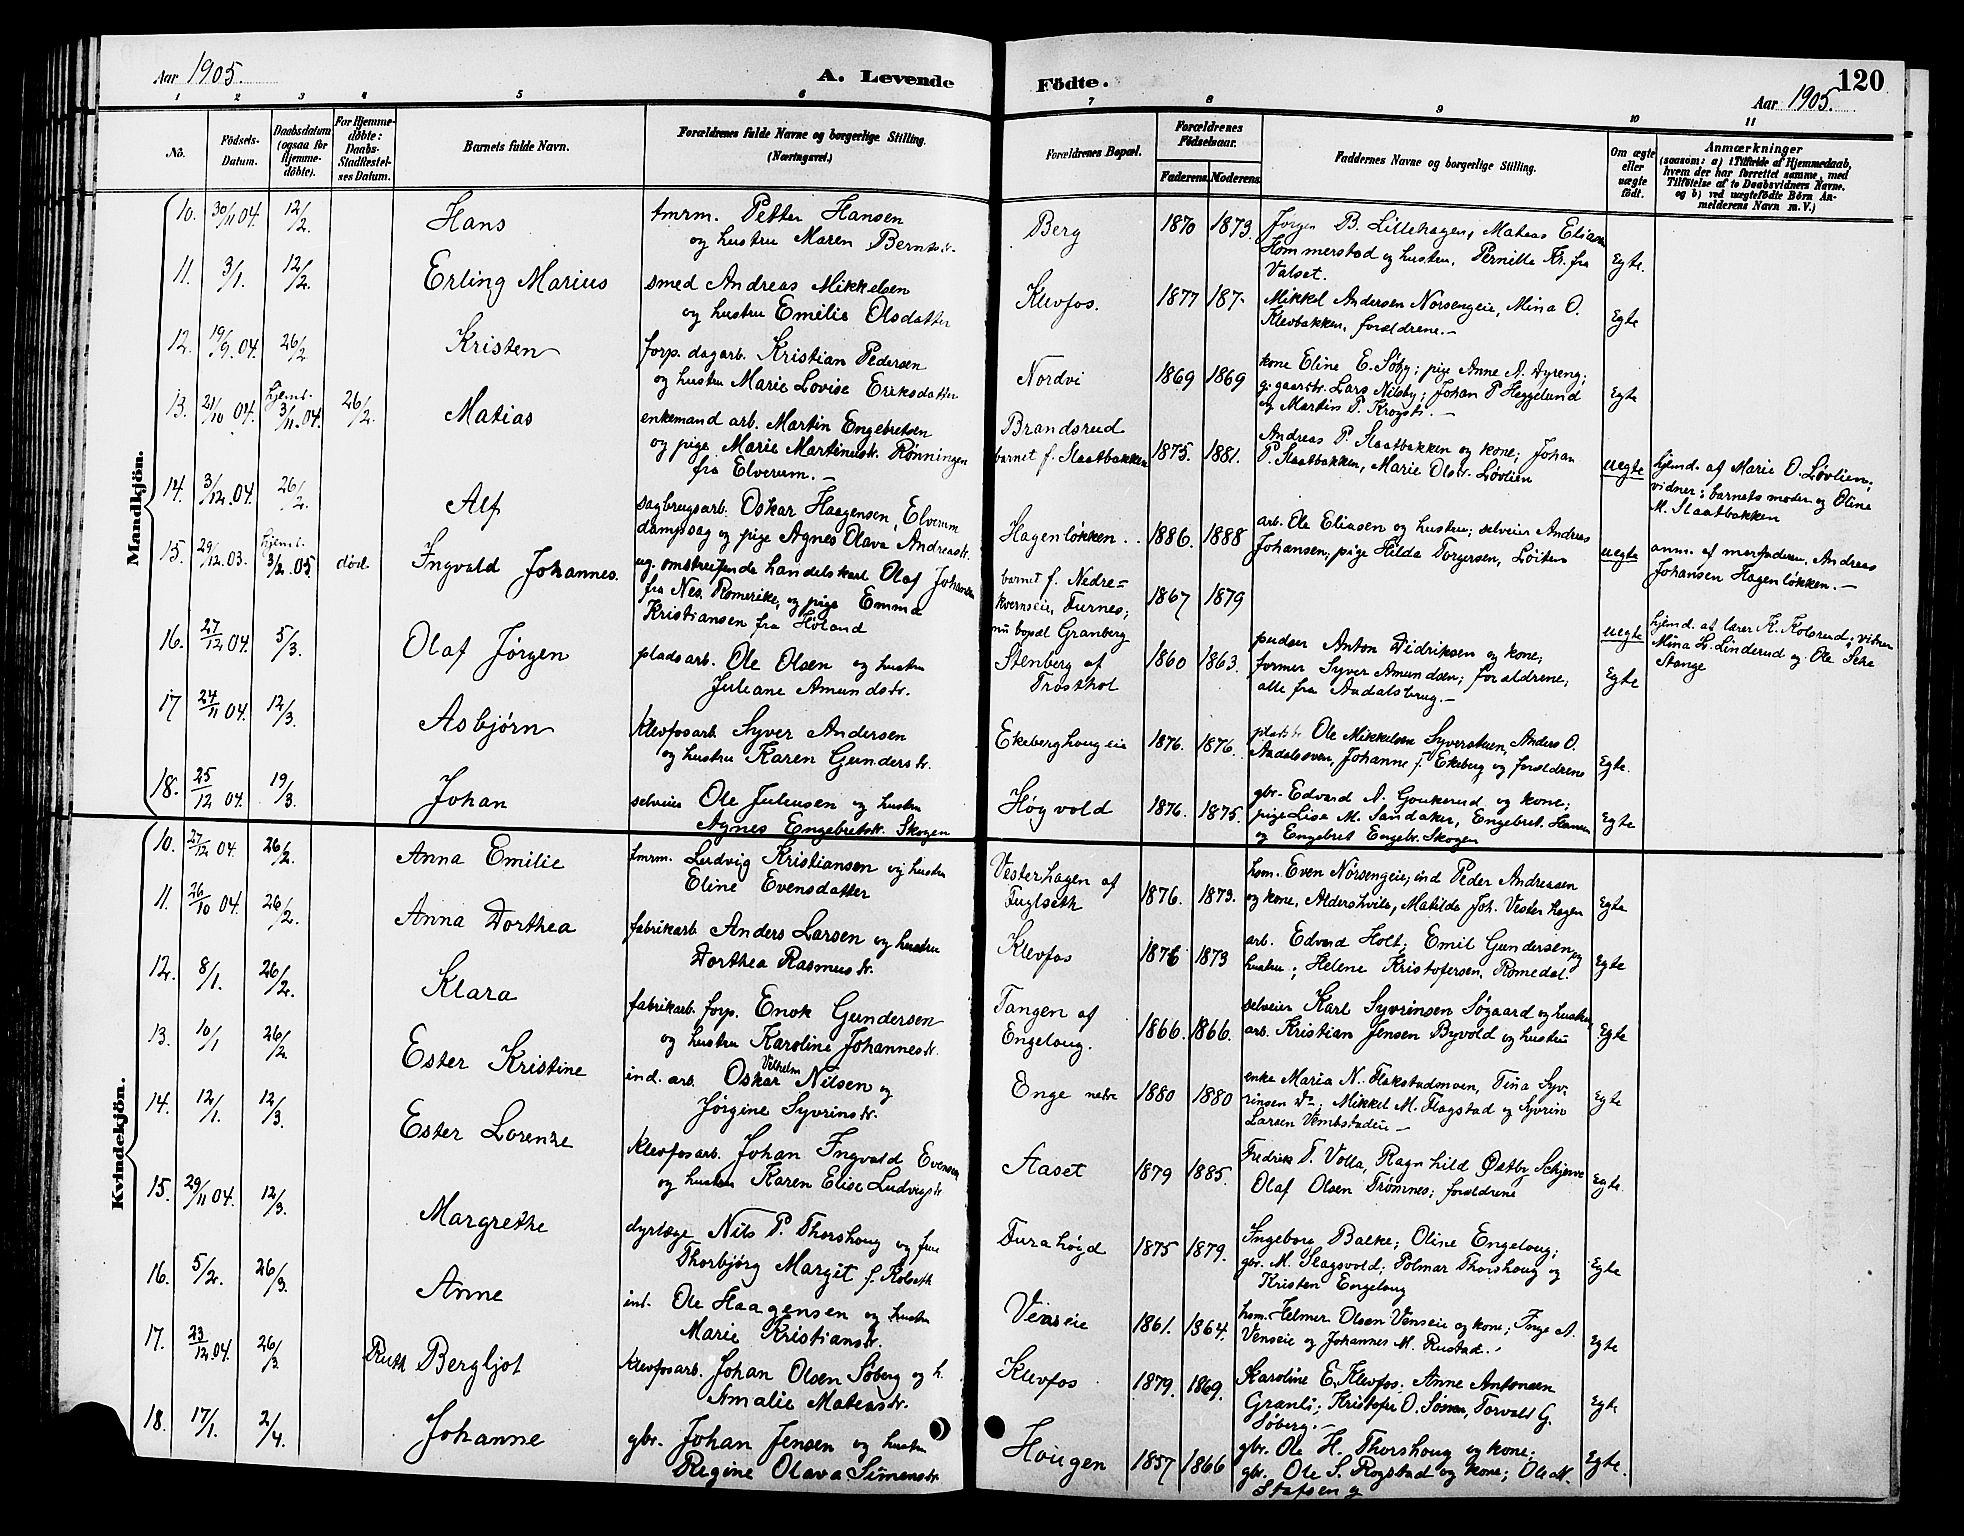 Aar 1905.
A. Levende
Födte.
120
Aar 1905.
1 2 3 4 5 6 7 8 9 10 11
No.
Födsels-
Datum.
Daabsdatum
(ogsaa for
Hjemme-
döbte).
For Hjemme-
döbte:
Daabs-
Stadfæstel-
ses Datum.
Barnets fulde Navn.
Forældrenes fulde Navne og borgerlige Stilling.
(Næringsvei.)
Forældrenes Bopæl.
Forældrenes
Födselsaar.
Faderens. Moderens.
Faddernes Navne og borgerlige Stilling.
Om ægte
eller
uægte
födt.
Anmærkninger
(saasom: a) i Tilfælde af Hjemmedaab,
hvem der har forrettet samme, med
Tilföielse af to Daabsvidners Navne,
og b) ved uægtefödte Börn An-
melderens Navn m. V.)
Mandkjön.
10. 30/11 04. 12/2. Hans
tmrm. Petter Hansen
og hustru Maren Berntsdr.
Berg 1870 1873.
Jørgen B. Lillehagen, Mateas Eliasen
Hommerstad og hustru, Pernille Kr. fra
Valset.
Egte.
11. 3/1. 12/2. Erling Marius
smed Andreas Mikkelsen
og hustru Emilie Olsdatter
Klevfos. 1877 187-
Mikkel Andersen Norsengeie, Mina O.
Klevbakken, forældrene.-
Egte
12. 19/9. 04. 26/2 Kristen
forp. dagarb. Kristian Pedersen
og hustru Marie Lovise Eriksdatter
Nordvi 1869 1869
kone Eline E. Søby; pige Anne A. Dyreng;
g. gaardbr. Lars Nilsby; Johan P Heggelund
og Martin P. Krogst.-
Egte
13. 21/10 04. hjemd. 3/11. 04. 26/2. Matias
enkemand arb. Martin Engebretsen
og pige Marie Martinusdr. Rønningen
fra Elverum.-
Brandsrud
barnet f. Slaatbakken 1875. 1881.
Andreas P. Slaatbakken og kone; Johan
P. Slaatbakken, Marie Olsdr. Løvlien
uegte
hjemd. af Marie O. Løvlien;
vidner: barnets moder og Oline
M. Slaatbakken
14. 3/12. 04. 26/2. Alf
sagbrugsarb. Oskar Haagensen, Elverum
dampsag og pige Agnes Olava Andreasdr.
Hagenløkken 1886. 1888
arb. Ole Eliasen og hustru; selveier Andreas
Johansen; pige Hilda Torgersen, Løiten
uegte
anm. af morfaderen, Andreas
Johansen Hagenløkken.-
15. 29/12. 03. hjemd. 3/2. 05. død Ingvald Johannes.
ug. omstreifende handelskarl Olaf Johansen
fra Nes, Romerike, og pige Emma
Kristiansen fra Høland
barnet f. Nedre-
kvernseie, Furnes;
nu bopæl Granberg
1867 1879
uegte
hjemd. af lærer K. Kolsrud; vidner
Mina L. Linderud og Ole Sexe
Stange
16. 27/12 04. 5/3. Olaf Jørgen
pladsarb. Ole Olsen og hustru
Juliane Amundsdr.
Stenberg af
Frosthol
1860 1863.
pudser Anton Didriksen og kone;
former Syver Amundsen; forældrene;
alle fra Aadalsbrug.-
Egte
17 24/11 04. 12/3. Asbjørn
klevfosarb. Syver Andersen
og hustru Karen Gundersdr.
Ekeberghougeie 1876. 1876.
Ole Mikkelsen Syverstuen, Anders O.
Aadalsoven, Johanne f. Ekeberg og forældrene
Egte.
18. 25/12 04. 19/3. Johan
selveier Ole Juliusen og hustru
Agnes Engebretsdr. Skogen
Høgvold 1876. 1875.
gbr. Edvard A. Goukerud og kone;
pige Lisa M. Sandaker, Engebret Hansen
og Engebret Engebr. Skogen
Egte
Kvindekjön.
10. 27/12 04. 26/2. Anna Emilie
tmrm. Ludvig Kristiansen og hustru
Eline Evensdatter
Vesterhagen af
Fuglseth
1876. 1873.
hom. Even Norsengeie; ind Peder Andreasen
og kone, Aldershvile, Matilde Joh. Vesterhagen
Egte
11. 26/10 04. 26/2. Anna Dorthea
fabrikarb. Anders Larsen og hustru
Dorthea Rasmusdr.
Klevfos 1876 1873
arb. Edvard Holt; Emil Gundersen og
hustru; Helene Kristofersen, Romedal.
Egte
12. 8/1. 26/2. Klara
fabrikarb. forp. Enok Gundersen
og hustru Karoline Johannesdr.
Tangen af
Engeloug.
1866. 1866.
selveier Karl Syvrinsen Søgaard og hustru
arb. Kristian Jensen Byvold og hustru
Egte
13. 10/1 26/2. Ester Kristine
ind. arb. Oskar Vilhelm Nilsen og
Jørgine Syvrinsdr.
Enge nedre 1880 1880
enke Maria N. Flakstadmoen, Tina Syv-
rinsen do; Mikkel M. Flagstad og Syvrin
Larsen Vembstadeie -
Egte
14. 12/1. 12/3. Ester Lorenze
klevfosarb. Johan Ingvald Evensen
og hustru Karen Elise Ludvigsdr
Aaset 1879 1885.
Fredrik T. Volla, Ragnhild Østby Schjerve
Olaf Olsen Trømnes; forældrene
Egte.
15. 29/11 04. 12/3. Margrethe
dyrlæge Nils P. Thorshoug og frue
Thorbjørg Margit f. Kolseth
Furahøgd 1875 1879.
Ingeborg Balke; Oline Engeloug;
gbr. M. Slagsvold; Polmar Thorshoug og
Kristen Engeloug
Egte
16. 5/2. 26/3. Anne
ind. Ole Haagensen og hustru
Marie Kristiansdr.
Venseie 1861. 1864.
hom. Helmer Olsen Venseie og kone; Inge A.
Venseie og Johannes M. Rustad.-
Egte
17. 23/12. 04. 26/3 Ruth Bergljot
klevfosarb. Johan Olsen Søberg og h.
Amalie Mateasdr.
Klevfos 1879. 1869.
Karoline E. Klevfos. Anne Antonsen
Granli; Kristofer O. Torvald G.
Søberg.-
Egte
18. 17/1. 2/4. Johanne
gbr. Johan Jensen og hustru
Regine Olava Simensdr.
Hougen 1857 1866
gbr. Ole H. Thorshoug og kone;
gbr. Ole S. Rogstad og kone; Ole M.
Stafsen og
Egte.